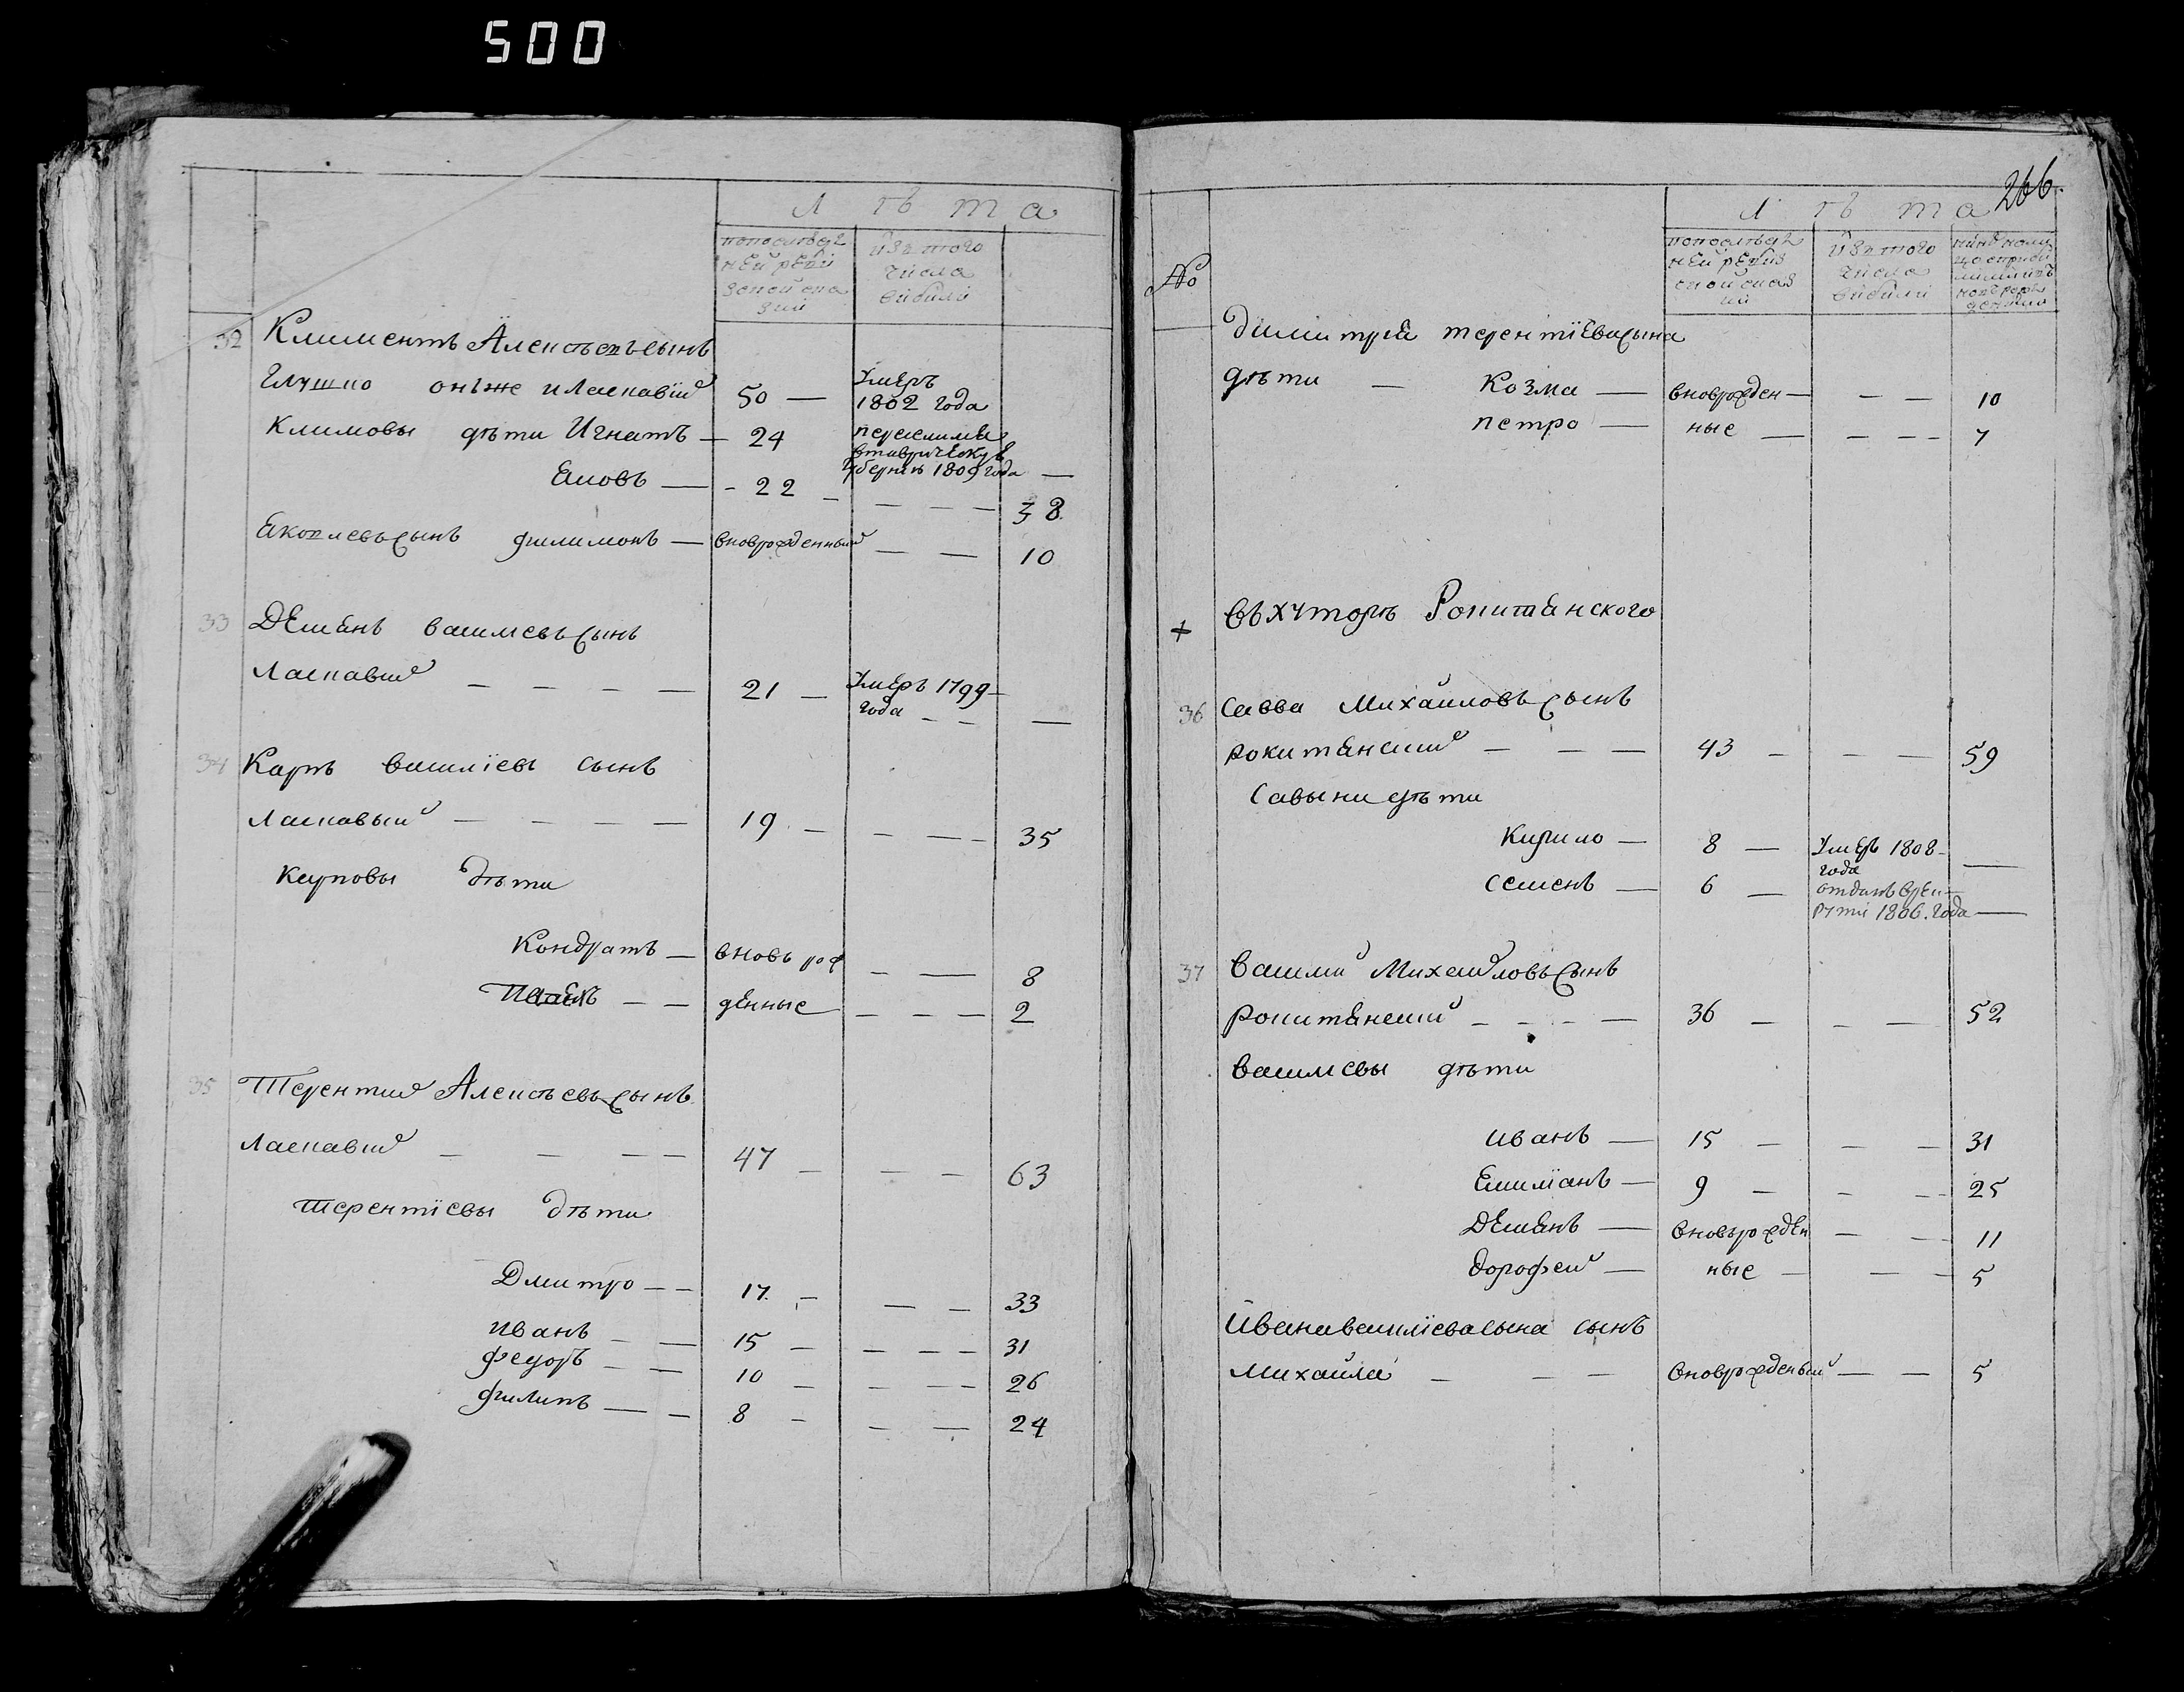 500
Л ѣ т а
попослѣд
ней реви
зской ска
зки
изъ того
числа
выбыли
32 Климентъ Алексѣевъ сынъ
Глушко онъже и Ласкавый 50 — Умеръ
1802 года
Климовы дѣти Игнатъ — 24
губернію 1809 года —
Яковъ — 22 — — — 38
Яковлевъ сынъ Филимонъ — вноврожденный — — 10
33 Демянъ Васильевъ сынъ
Ласкавый — — — — 21 — Умеръ 1799
года — — —
34 Карпъ Василіевъ сынъ
Ласкавый — — — — 19 — — — 35
Карповы дѣти
Кондратъ — вновь рож — — 8
— — денные — — — 2
35 Терентий Алексѣевъ сынъ
Ласкавий — — — — 47 — — — 63
Терентіевы дѣти
Дмитро — — 17 — — — 33
Иванъ — — 15 — — — — 31
Федоръ — — 10 — — — — 26
Филипъ — — 8 — — — 24
266
Л ѣ т а
№
попослѣд
ней ревиз
ской сказ
ки
изъ того
числа
выбыли
Димитрия Терентіева сына
дѣти — Козма — вноврожден — — — 10
Петро — ные — — — — 7
+ Въ хуторѣ Рокитянского
36 Савва Михайловъ сынъ
Рокитянский — — — 43 — — — 59
Савыни дѣти
Кирило — 8 — Умеръ 1808
года —
Семенъ — 6 — отданъврек
руты 1806. года —
37 Василий Михайловъ сынъ
Рокитянский — — — — 36 — — — 52
Васильевы дѣти
Иванъ — 15 — — — 31
Емиліанъ — 9 — — — 25
Демянъ — вновьрожден — — 11
Дорофей — ные — — — 5
Ивана Василіева сына сынъ
Михайла — — — вноврожденый — — 5